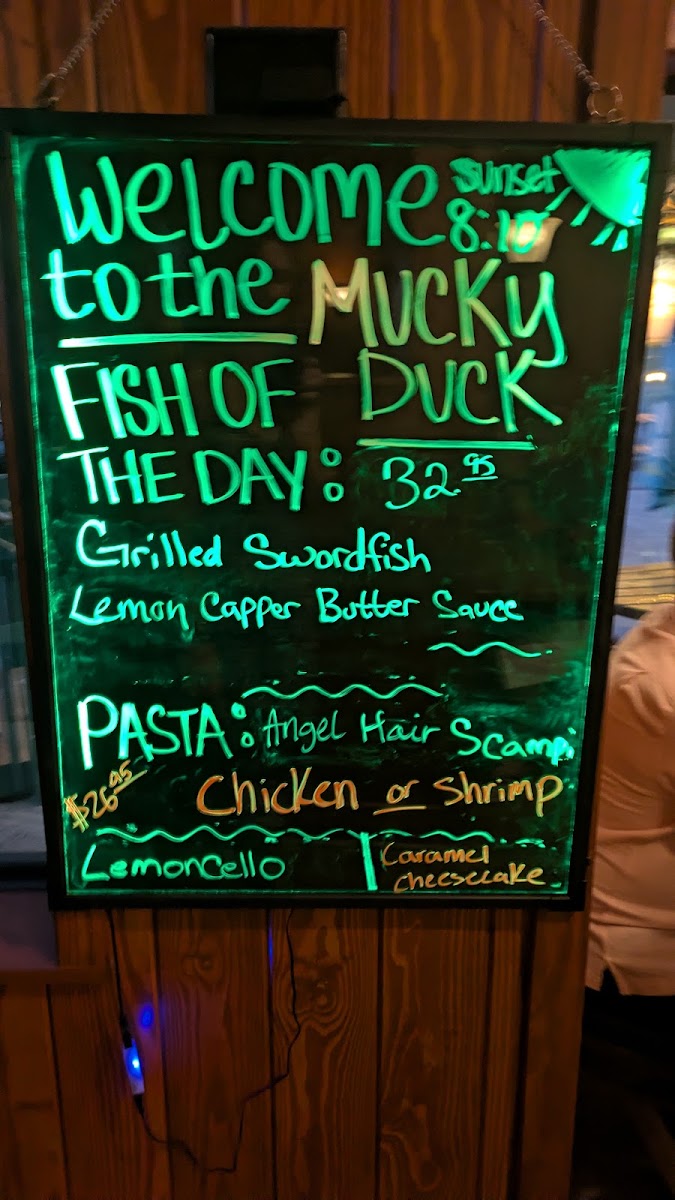 Welcome
sunset
8:10
to the MUCKY
DUCK
FISH OF
THE DAY: 32.95
Grilled Swordfish
Lemon Capper Butter Sauce
PASTA: Angel Hair Scampi
$26.95 Chicken or Shrimp
Lemoncello
Caramel
cheesecake